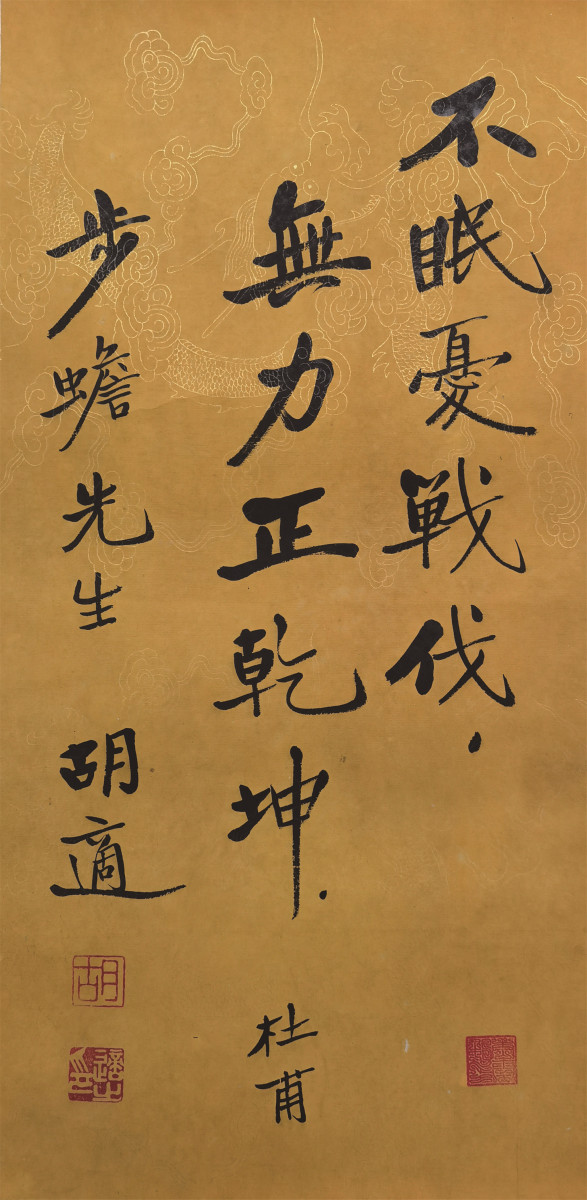 不眠憂戰伐，
無力正乾坤．
杜甫
步蟾先生
胡適
胡
適之印